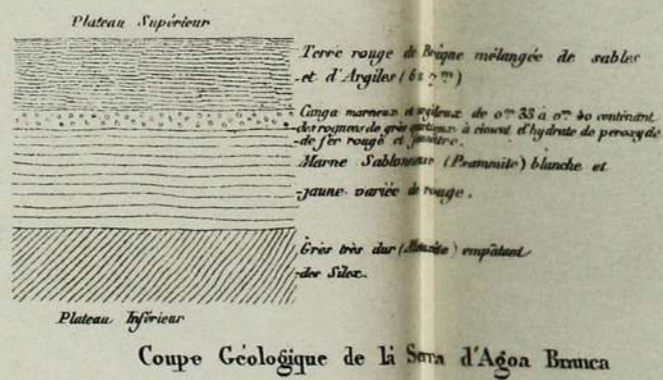 Plateau Supérieur
Terre rouge de Brique mélangée de sables
et d'Argiles (6 à 7m)
Canga marneux et argileux de 0m 35 à 0m 40 contenant
des rognons de grès à ciment d'hydrate de peroxyde
de fer rouge et
Marne Sablonneuse (Psammite) blanche et
jaune variée de rouge.
Grès très dur empâtant
des Silex.
Plateau Inférieur
Coupe Géologique de la Serra d'Agoa Branca